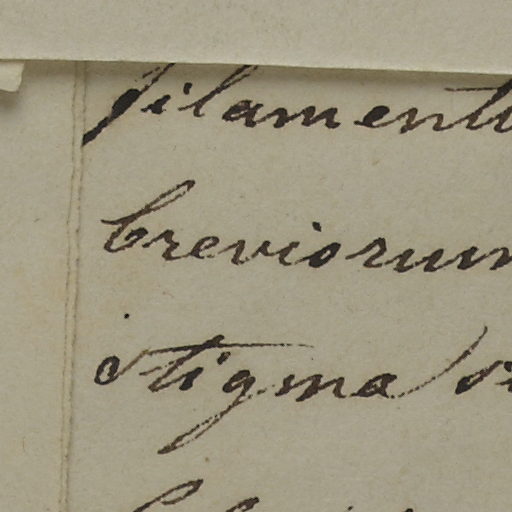 filamento
breviorum
stigma